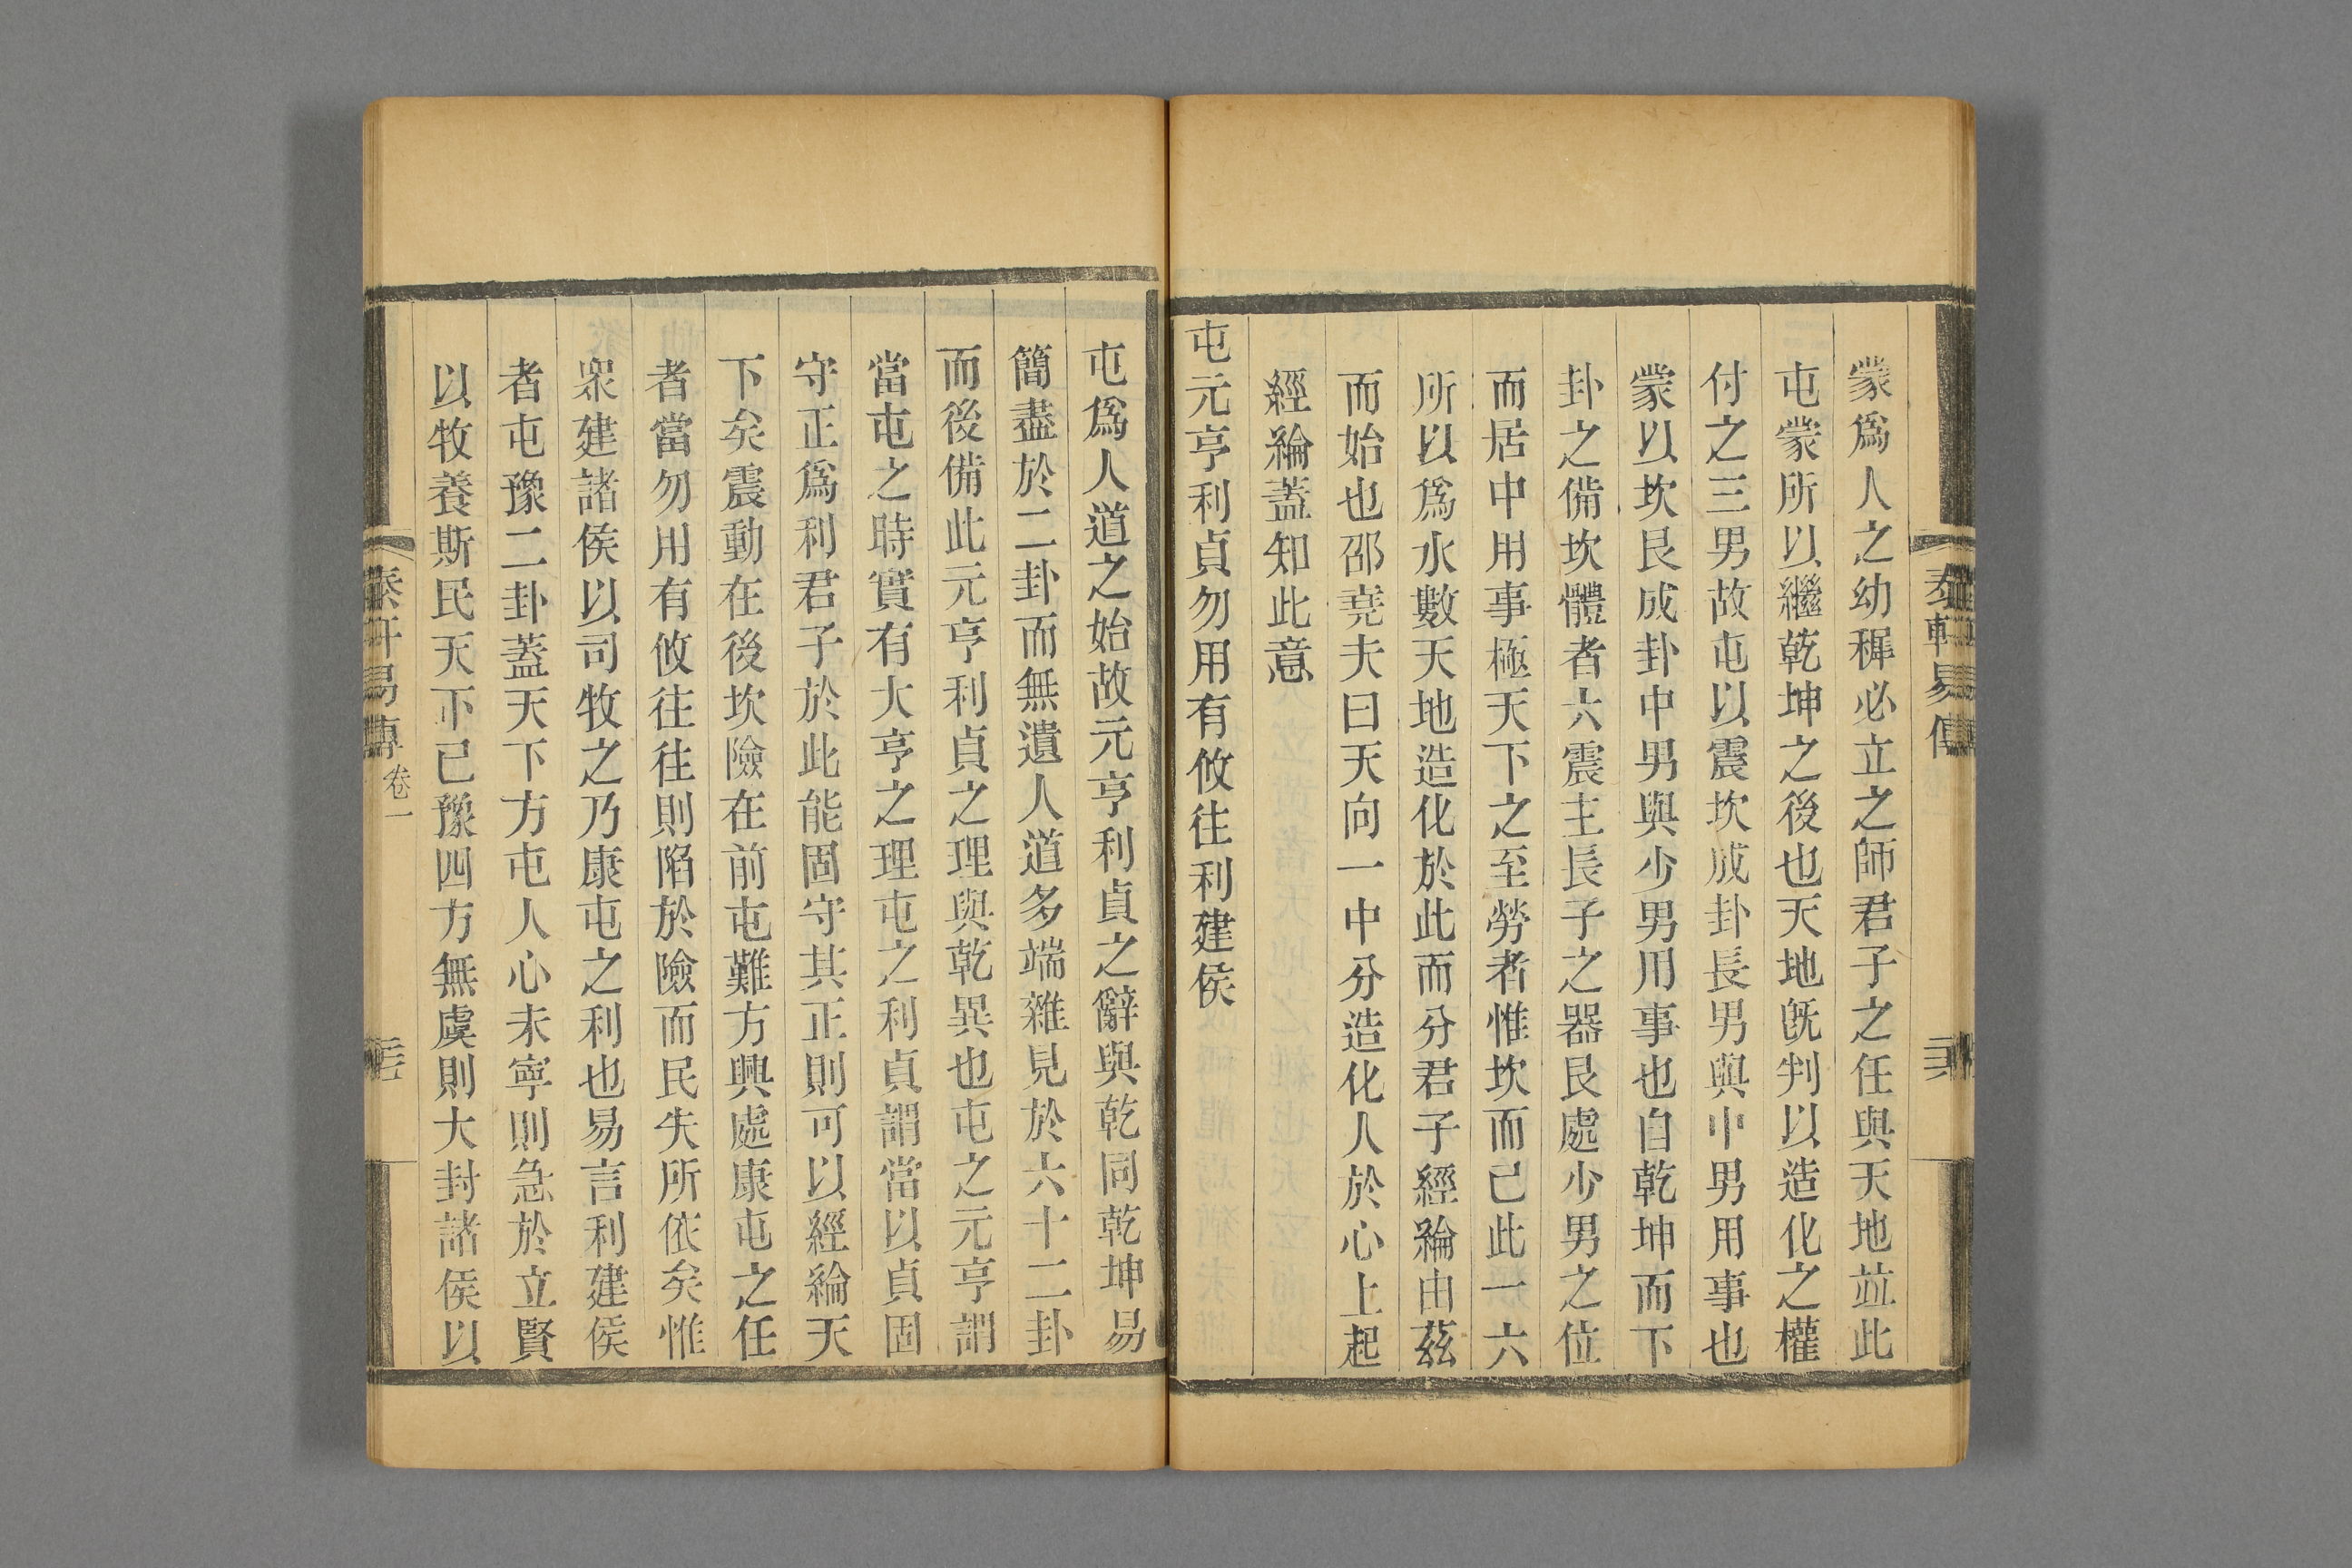 蒙爲人之幼穉必立之師君子之任與天地竝此
屯蒙所以繼乾坤之後也天地旣判以造化之權
付之三男故屯以震坎成卦長男與中男用事也
蒙以坎艮成卦中男與少男用事也自乾坤而下
卦之備坎體者六震主長子之器艮處少男之位
而居中用事極天下之至勞者惟坎而已此一六
所以爲水數天地造化於此而分君子經綸由茲
而始也邵堯夫曰天向一中分造化人於心上起
經綸蓋知此意
屯元亨利貞勿用有攸往利建侯
屯爲人道之始故元亨利貞之辭與乾同乾坤易
簡盡於二卦而無遺人道多端雜見於六十二卦
而後備此元亨利貞之理與乾異也屯之元亨謂
當屯之時實有大亨之理屯之利貞謂當以貞固
守正爲利君子於此能固守其正則可以經綸天
下矣震動在後坎險在前屯難方興處康屯之任
者當勿用有攸往往則陷於險而民失所依矣惟
衆建諸侯以司牧之乃康屯之利也易言利建侯
者屯豫二卦蓋天下方屯人心未寧則急於立賢
以牧養斯民天下已豫四方無虞則大封諸侯以
易傳
卷一